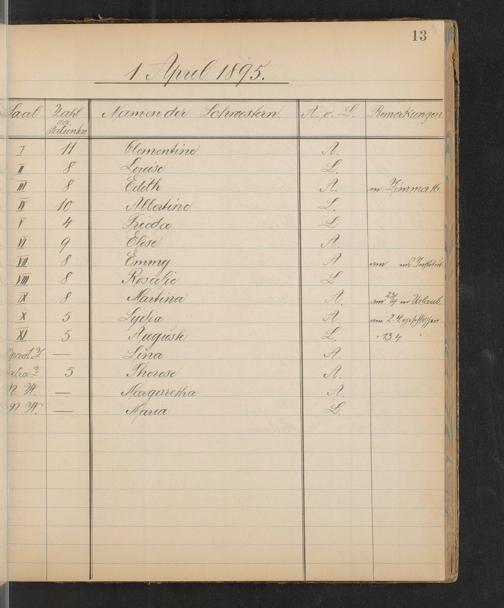 13
1 April 1895.
Saal Zahl der Namen der Schwestern A. o. L. Bemerkungen
I 11 Clementine A.
II 8 Louise L.
III 8 Edith A.
IV 10 Albertine L.
V 4 Frieda L
VI 9 Elise A.
VII 8 Emmy A
VIII 8 Rosalie L
IX 8 Martina A. in Urlaub.
X 5 Lydia A
XI 5 Auguste L. 13 4 "
— Lina A.
5 Therese A
— Margaretha A.
— Maria L.